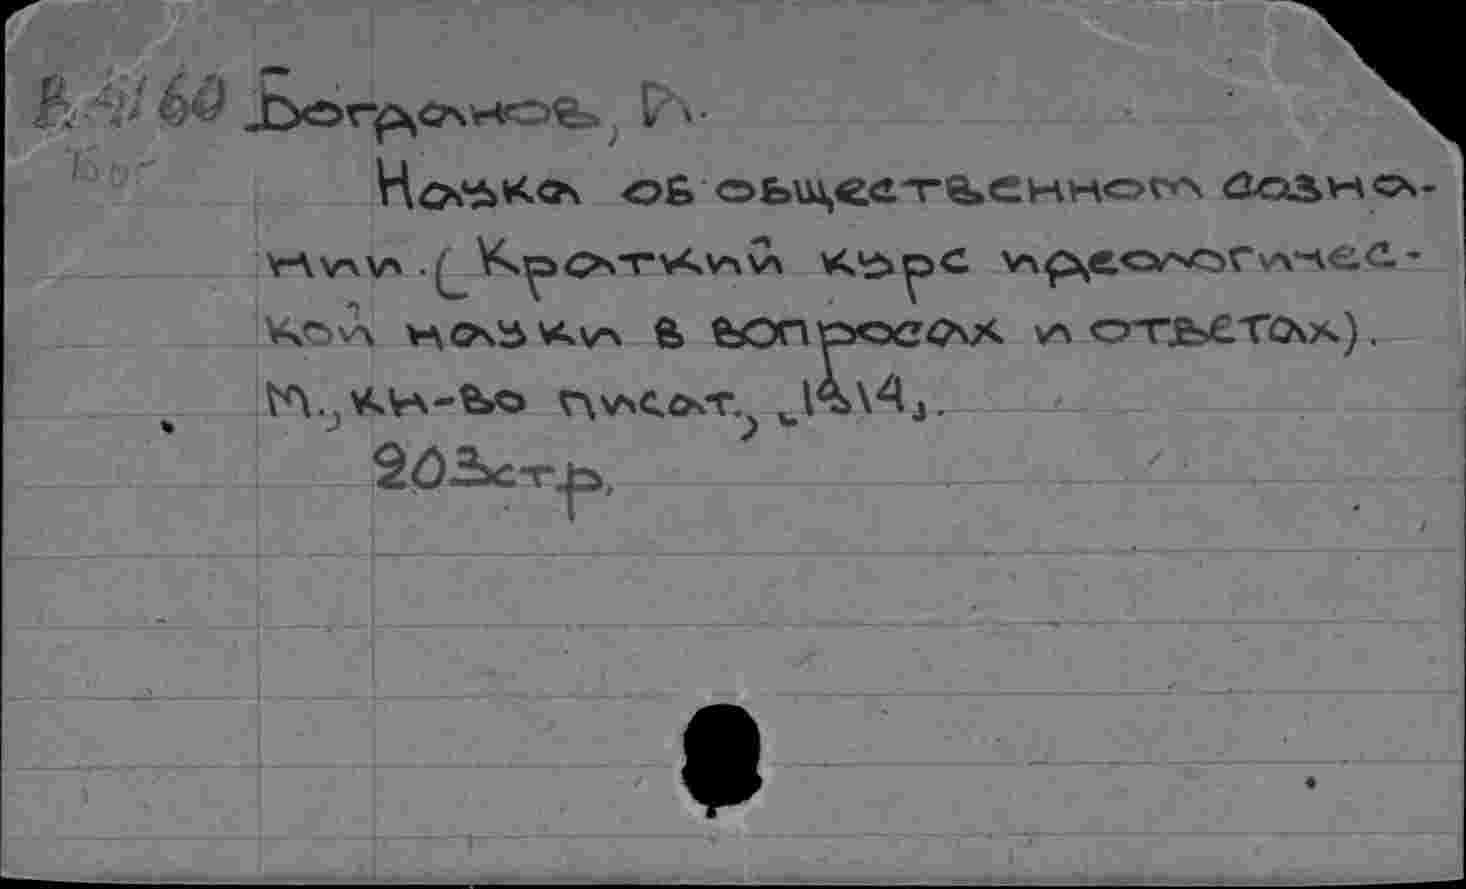 Богданов, А.
Наука об общественном созна-
нии. (Краткий курс идеологичес-
кой науки в вопросах и ответах).
М., Кн-во писат., 1914.
203 стр.